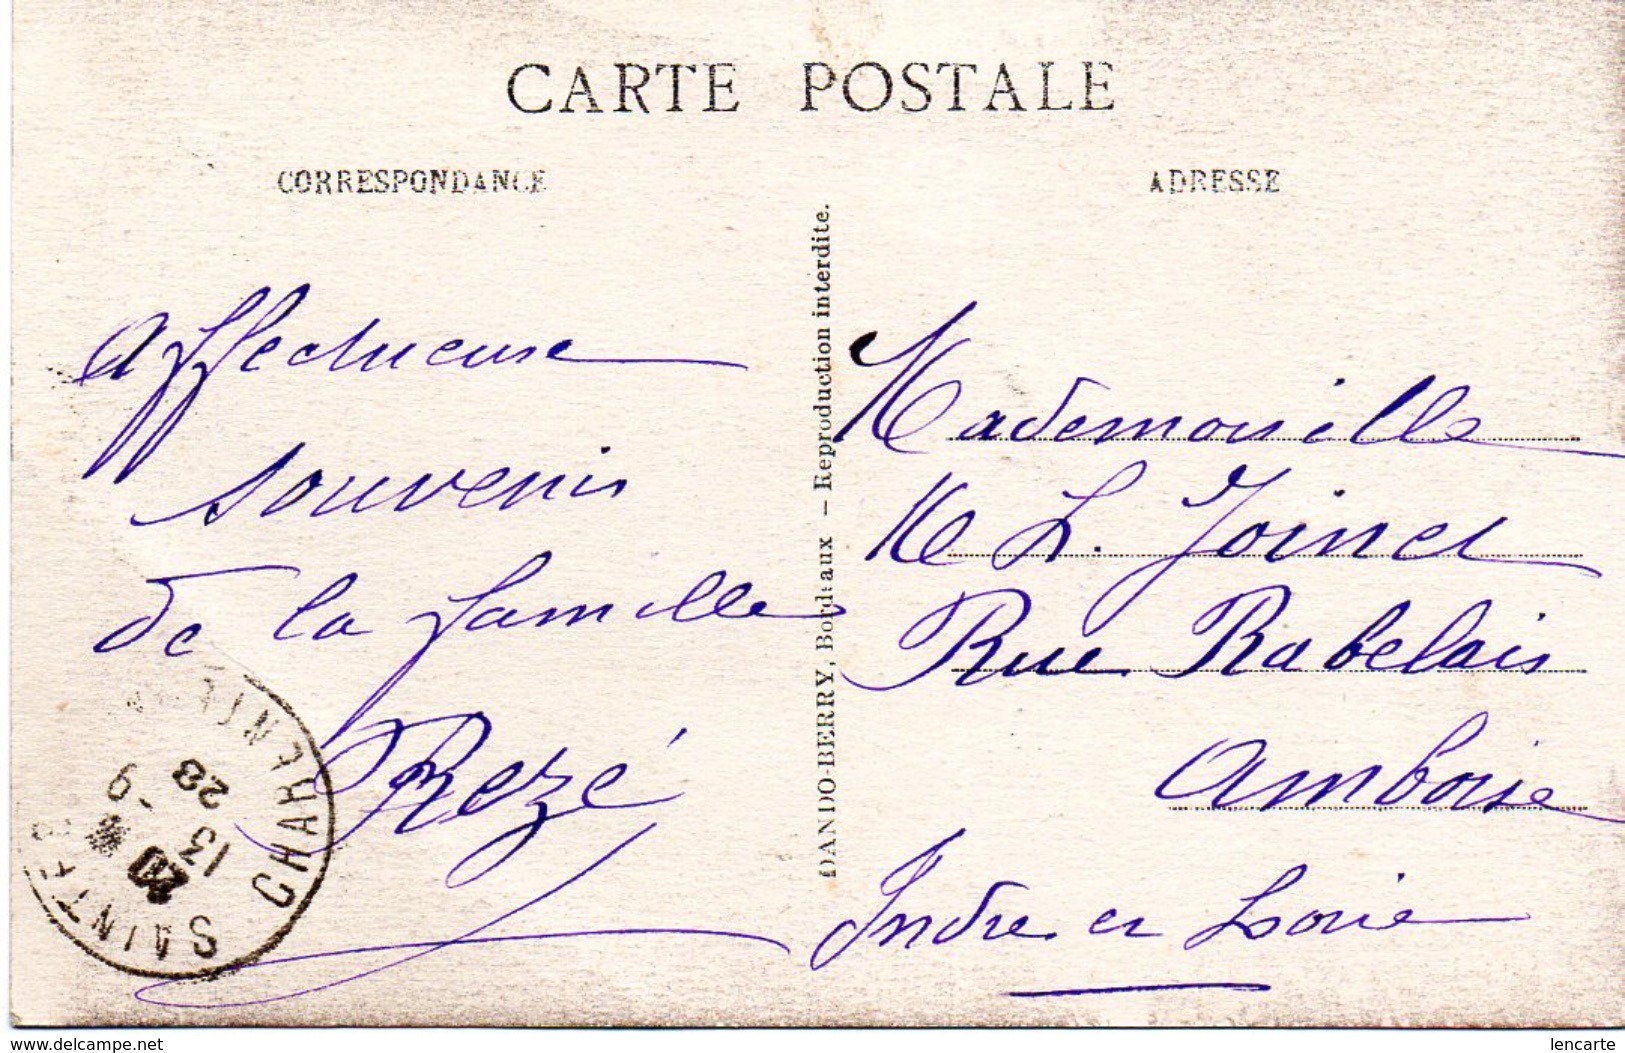 CARTE POSTALE
CORRESPONDANCE
ADRESSE
Affectueuse
souvenir
de la famille
Rezé
DANDO-BERRY, Bordeaux — Reproduction interdite.
Mademoiselle
M L. Joinet
Rue Rabelais
Amboise
Indre et Loire
SAINTES
CHARENTE
13
-9
28
www.delcampe.net
lencarte